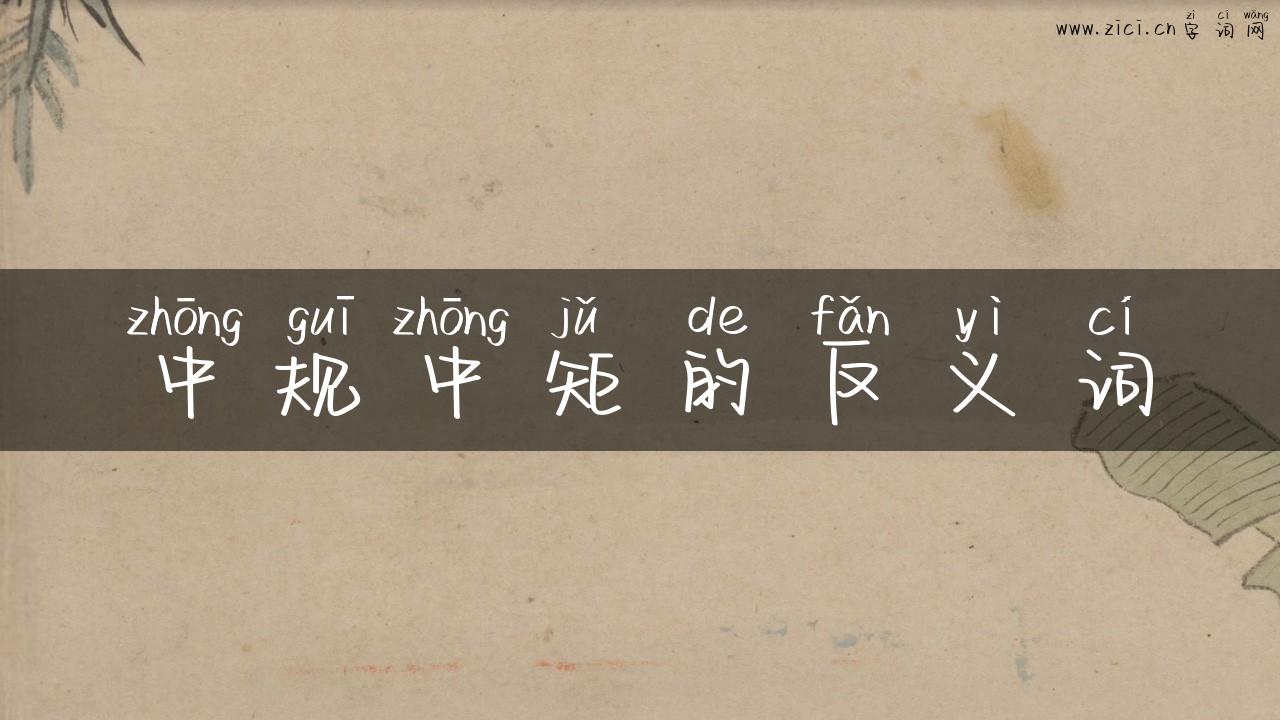 zì cí wǎng
www.zici.cn 字 词 网
zhōng guī zhōng jǔ de fǎn yì cí
中 规 中 矩 的 反 义 词